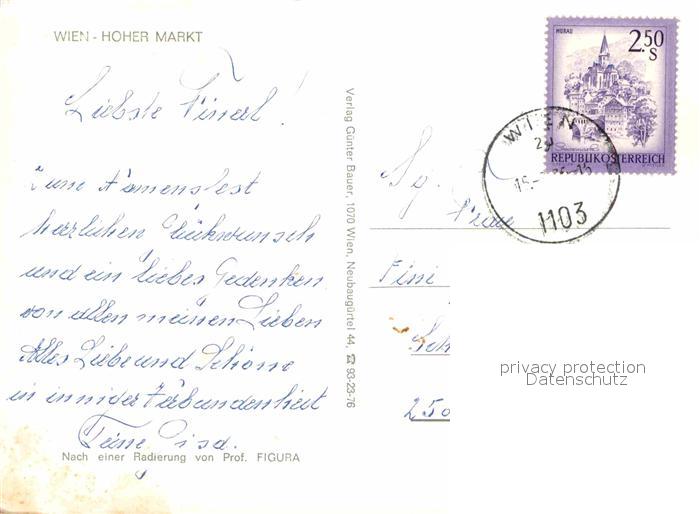 WIEN - HOHER MARKT
Liebste Finerl!
Zum Namensfest
herzlichen Glückwunsch
und ein liebes Gedenken
von allen meinen Lieben
Alles Liebe und Schöne
in inniger Verbundenheit
Deine Pisa.
Nach einer Radierung von Prof. FIGURA
Verlag Günter Bauer, 1070 Wien, Neubaugürtel 44, ☎ 93-23-76
MURAU
2.50
S
REPUBLIK ÖSTERREICH
WIEN
1103
Sg.
Frau
Fini
Sch
250
privacy protection
Datenschutz